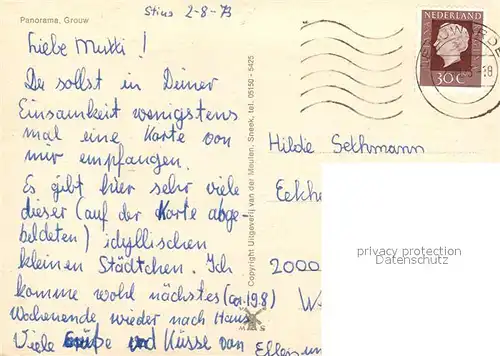 Panorama, Grouw
Stius 2-8-73
Liebe Mutti!
Du sollst in Deiner
Einsamkeit wenigstens
mal eine Karte von
mir empfangen.
Es gibt hier sehr viele
dieser (auf der Karte abge-
beldeten) idyllischen
kleinen Städtchen. Ich
komme wohl nächstes (ca. 19.8)
Wochenende wieder nach Haus
Viele Grüße und Küsse von
Copyright Uitgeverij van der Meulen, Sneek, tel. 05150 - 5425
NEDERLAND
30 C
Hilde Sethmann
2000
privacy protection
Datenschutz